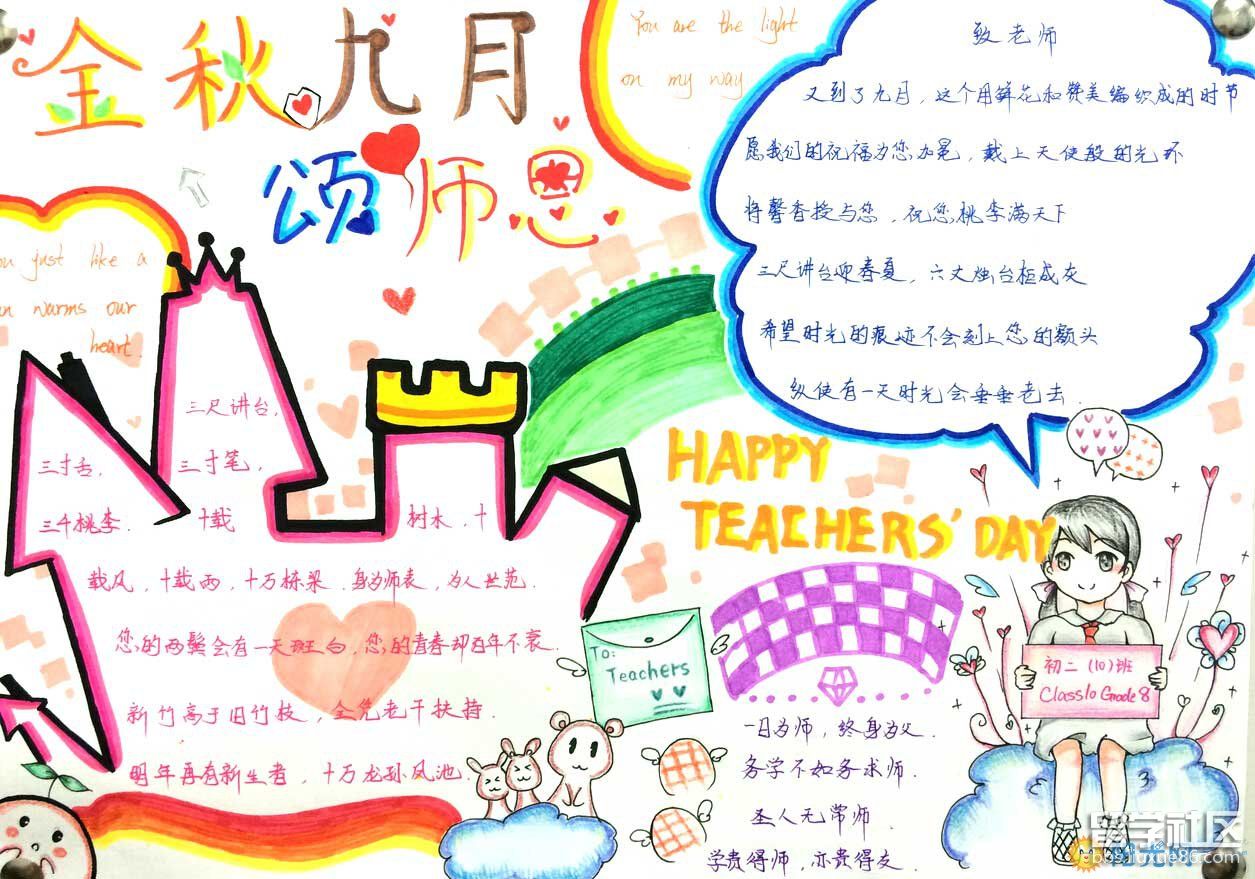 金秋九月
颂师恩
You are the light
on my way
致老师
又到了九月，这个用鲜花和赞美编织成的时节
愿我们的祝福为您加冕，戴上天使般的光环
将馨香授与您，祝您桃李满天下
三尺讲台迎春夏，六丈烛台柜成灰
希望时光的痕迹不会刻上您的额头
纵使有一天时光会垂垂老去.
ou just like a
n warms our
heart.
三尺讲台,
三寸舌, 三寸笔,
三千桃李. 十载 树木, 十
载风, 十载雨, 十万栋梁. 身为师表, 为人世范.
您的两鬓会有一天斑白, 您的青春却百年不衰.
新竹高于旧竹枝, 全凭老干扶持.
明年再有新生者, 十万龙孙凤池.
HAPPY
TEACHERS' DAY
To:
Teachers
初二 (10) 班
Class10 Grade8
一日为师, 终身为父.
务学不如务求师.
圣人无常师.
学贵得师, 亦贵得友.
留学社区
bbs.liuxue86.com